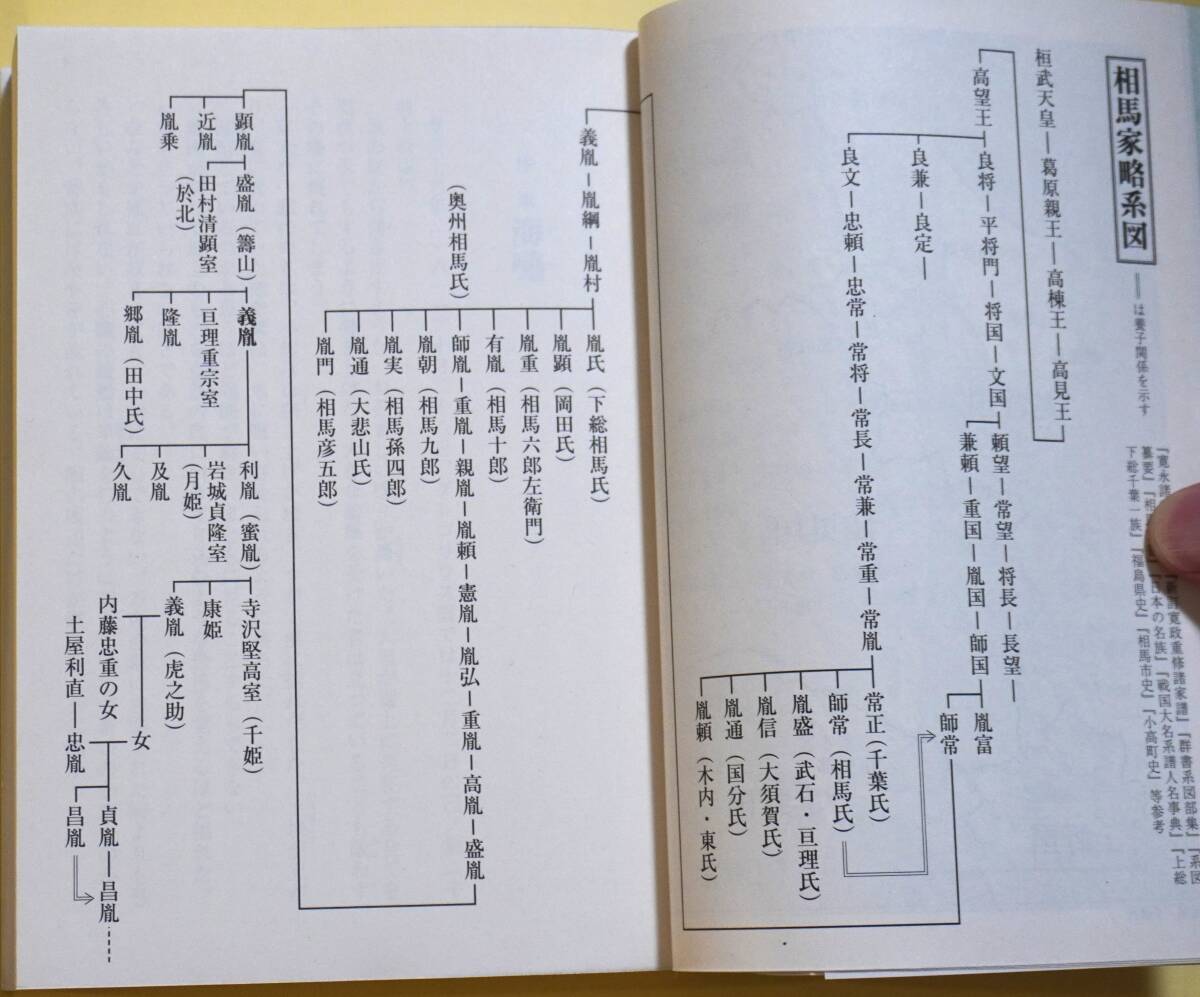 相馬家略系図
══は養子関係を示す
『寛永諸
『寛政重修諸家譜』『群書系図部集』『系図
纂要』『相
『日本の名族』『戦国大名系譜人名事典』『上総
下総千葉一族』『福島県史』『相馬市史』『小高町史』等参考
桓武天皇―葛原親王―高棟王―高見王
高望王
良将―平将門―将国―文国
頼望―常望―将長―長望―
兼頼―重国―胤国―師国
胤富
師常
良兼―良定―
良文―忠頼―忠常―常将―常長―常兼―常重―常胤
常正(千葉氏)
師常(相馬氏)
胤盛(武石・亘理氏)
胤信(大須賀氏)
胤通(国分氏)
胤頼(木内・東氏)
義胤―胤綱―胤村
胤氏(下総相馬氏)
胤顕(岡田氏)
胤重(相馬六郎左衛門)
有胤(相馬十郎)
(奥州相馬氏)
師胤―重胤―親胤―胤頼―憲胤―胤弘―重胤―高胤―盛胤
胤朝(相馬九郎)
胤実(相馬孫四郎)
胤通(大悲山氏)
胤門(相馬彦五郎)
顕胤
近胤
胤乗
盛胤(籌山)
田村清顕室
(於北)
義胤
亘理重宗室
隆胤
郷胤(田中氏)
利胤(蜜胤)
岩城貞隆室
(月姫)
及胤
久胤
寺沢堅高室(千姫)
康姫
義胤(虎之助)
女
内藤忠重の女
土屋利直―忠胤
貞胤―昌胤
昌胤